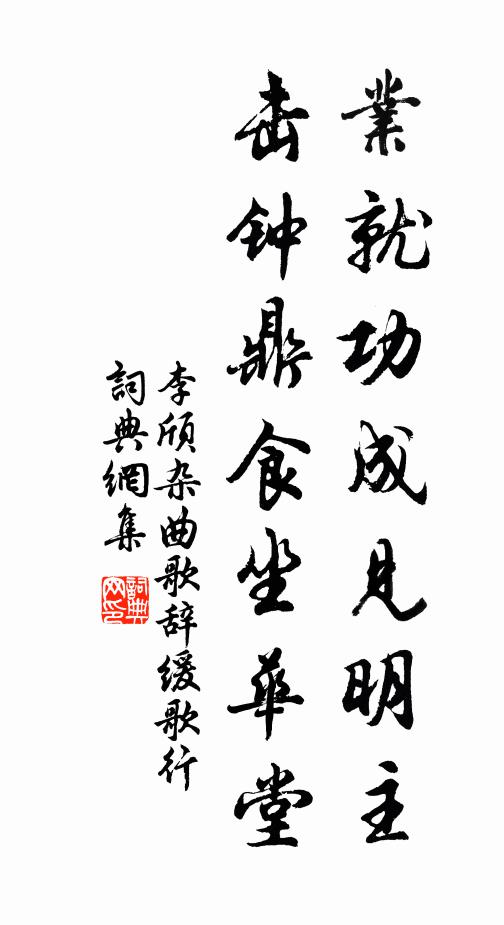 業就功成見明主
击钟鼎食坐華堂
李頎杂曲歌辞缓歌行
詞典網集
詞典網印